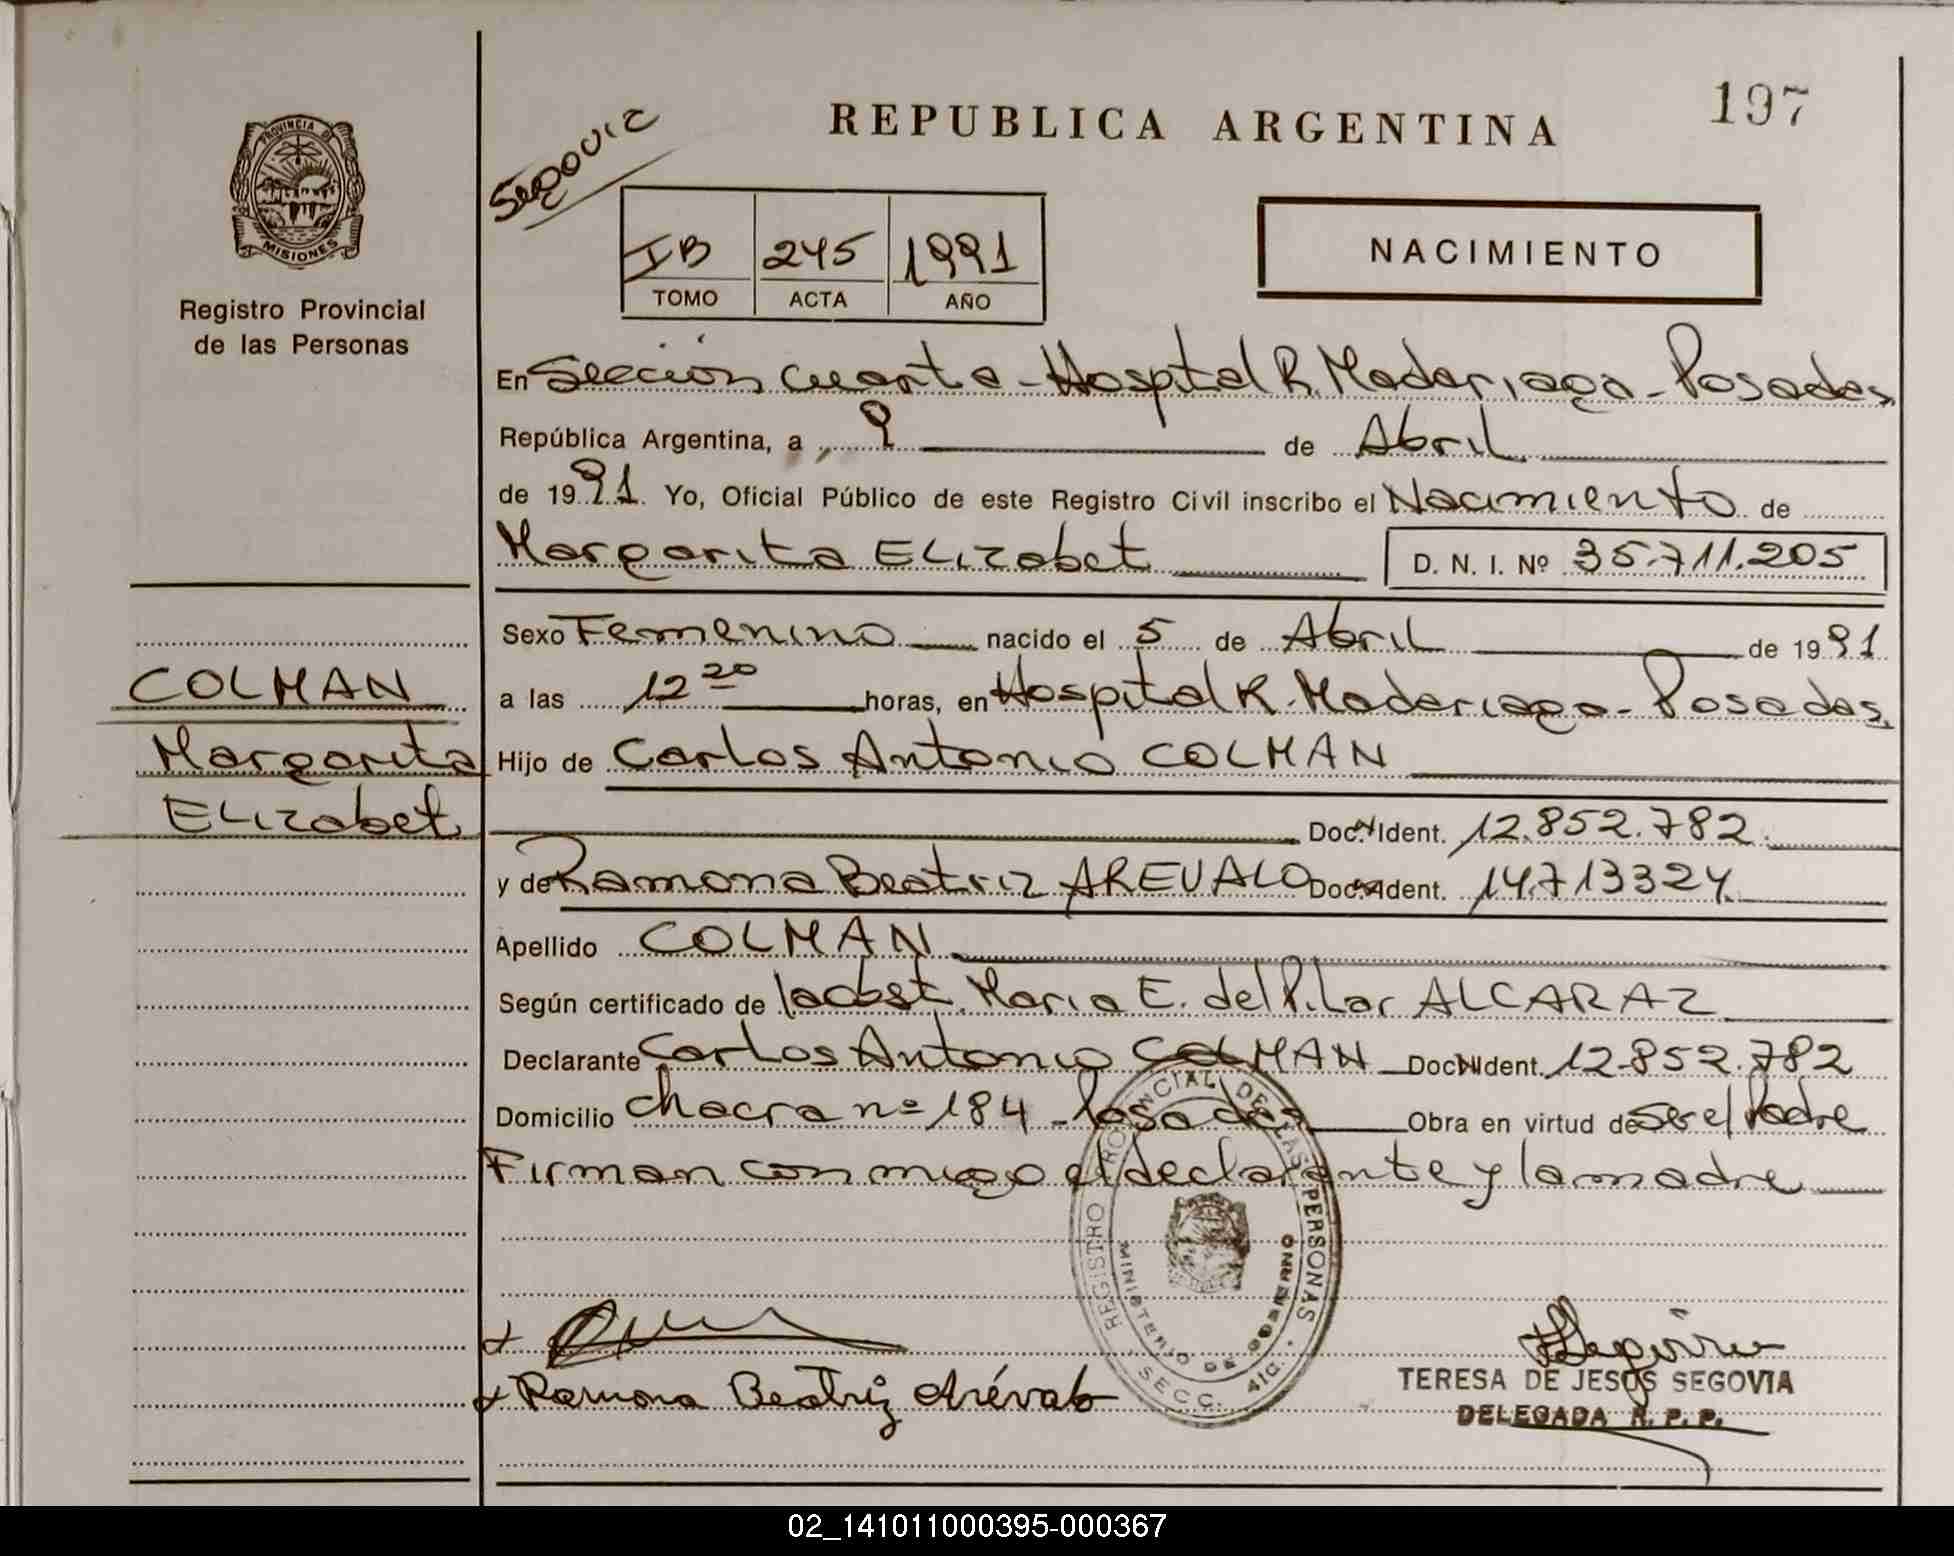 REPUBLICA ARGENTINA
197
PROVINCIA DE
MISIONES
Registro Provincial
de las Personas
Segovia
IB 245 1991
TOMO ACTA AÑO
NACIMIENTO
En Sección Cuarta - Hospital R. Madariaga - Posadas
República Argentina, a 9 de Abril
de 1991. Yo, Oficial Público de este Registro Civil inscribo el Nacimiento de
Margarita ELizabet D. N. I. Nº 35.711.205
Sexo Femenino nacido el 5 de Abril de 1991
COLMAN
a las 12 20 horas, en Hospital R. Madariaga - Posadas.
Margarita
Hijo de Carlos Antonio COLMAN
ELizabet
Doc. Ident. 12.852.782
y de Ramona Beatriz AREVALO Doc. Ident. 14.713324
Apellido COLMAN
Según certificado de la obst. Maria E. del Pilar ALCARAZ
Declarante Carlos Antonio COLMAN Doc Ident. 12.852.782
Domicilio Chacra nº 184 - Posadas Obra en virtud de ser el Padre
Firman conmigo el declarante y la madre
REGISTRO PROVINCIAL DE LAS PERSONAS
MINISTERIO DE GOBIERNO
SECC. 4ta.
Ramona Beatriz Arévalo
TERESA DE JESUS SEGOVIA
DELEGADA R. P. P.
02_141011000395-000367